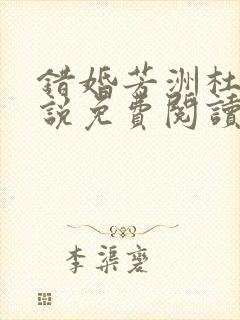 錯婚芳洲杜
說免費閱讀
李渠襃